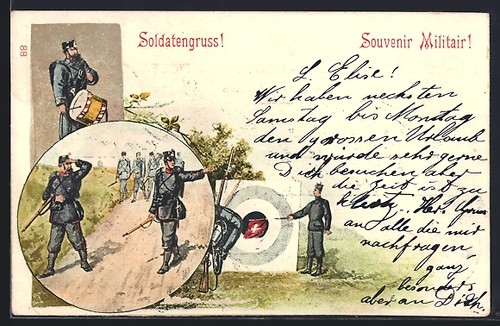 88
Soldatengruss!
Souvenir Militair!
L. Elise!
Wir haben nechsten
Samstag bis Montag
den grossen Urlaub
und würde sehr gerne
Dich besuchen aber
die Zeit ist zu
klein..
an alle die mir
nachfragen
ganz
besonders
aber an Dich.